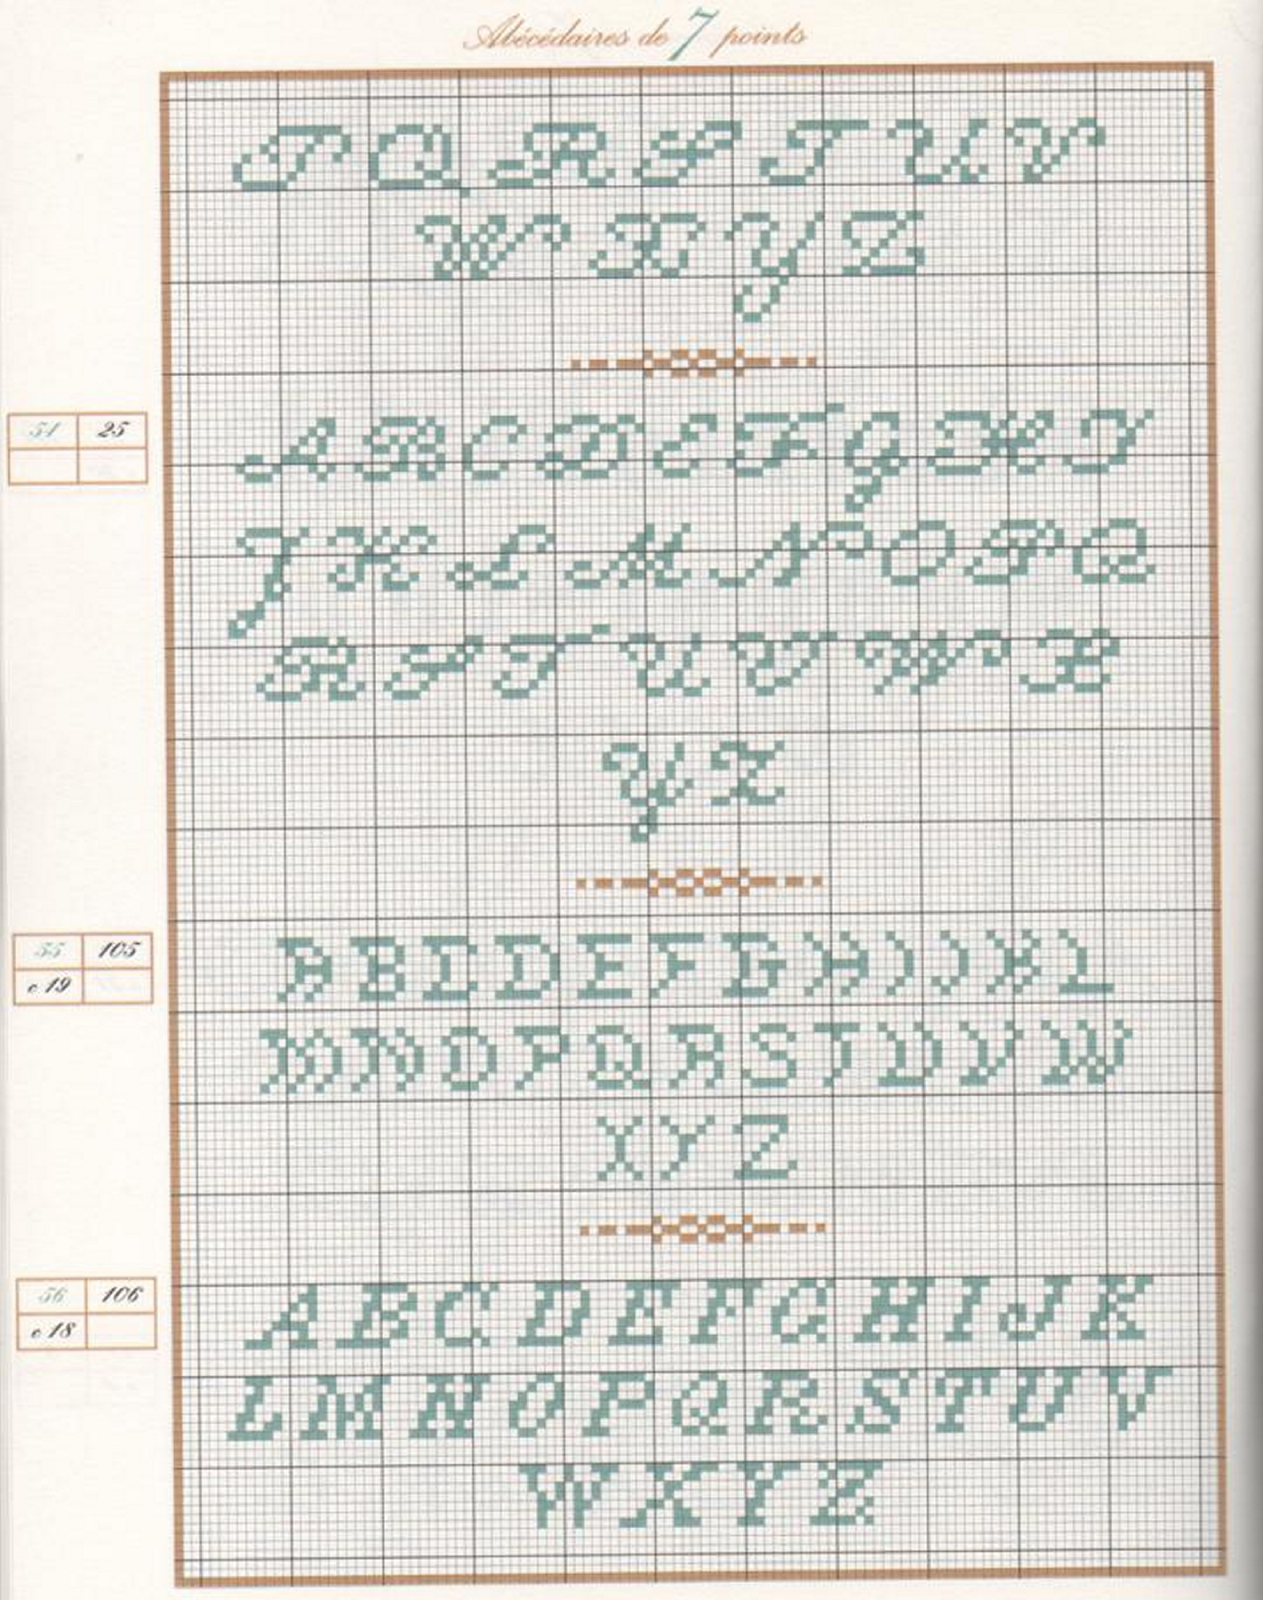 Abécédaires de 7 points
P Q R S T U V
W X Y Z
54 25
A B C D E F G H I
J K L M N O P Q
R S T U V W X
Y Z
55 105
c 19
A B C D E F G H I J K L
M N O P Q R S T U V W
X Y Z
56 106
c 18
A B C D E F G H I J K
L M N O P Q R S T U V
W X Y Z